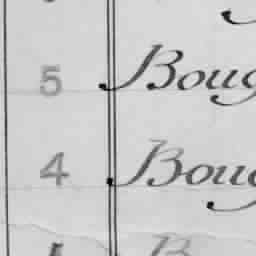 5 Boug
4 Boug
B